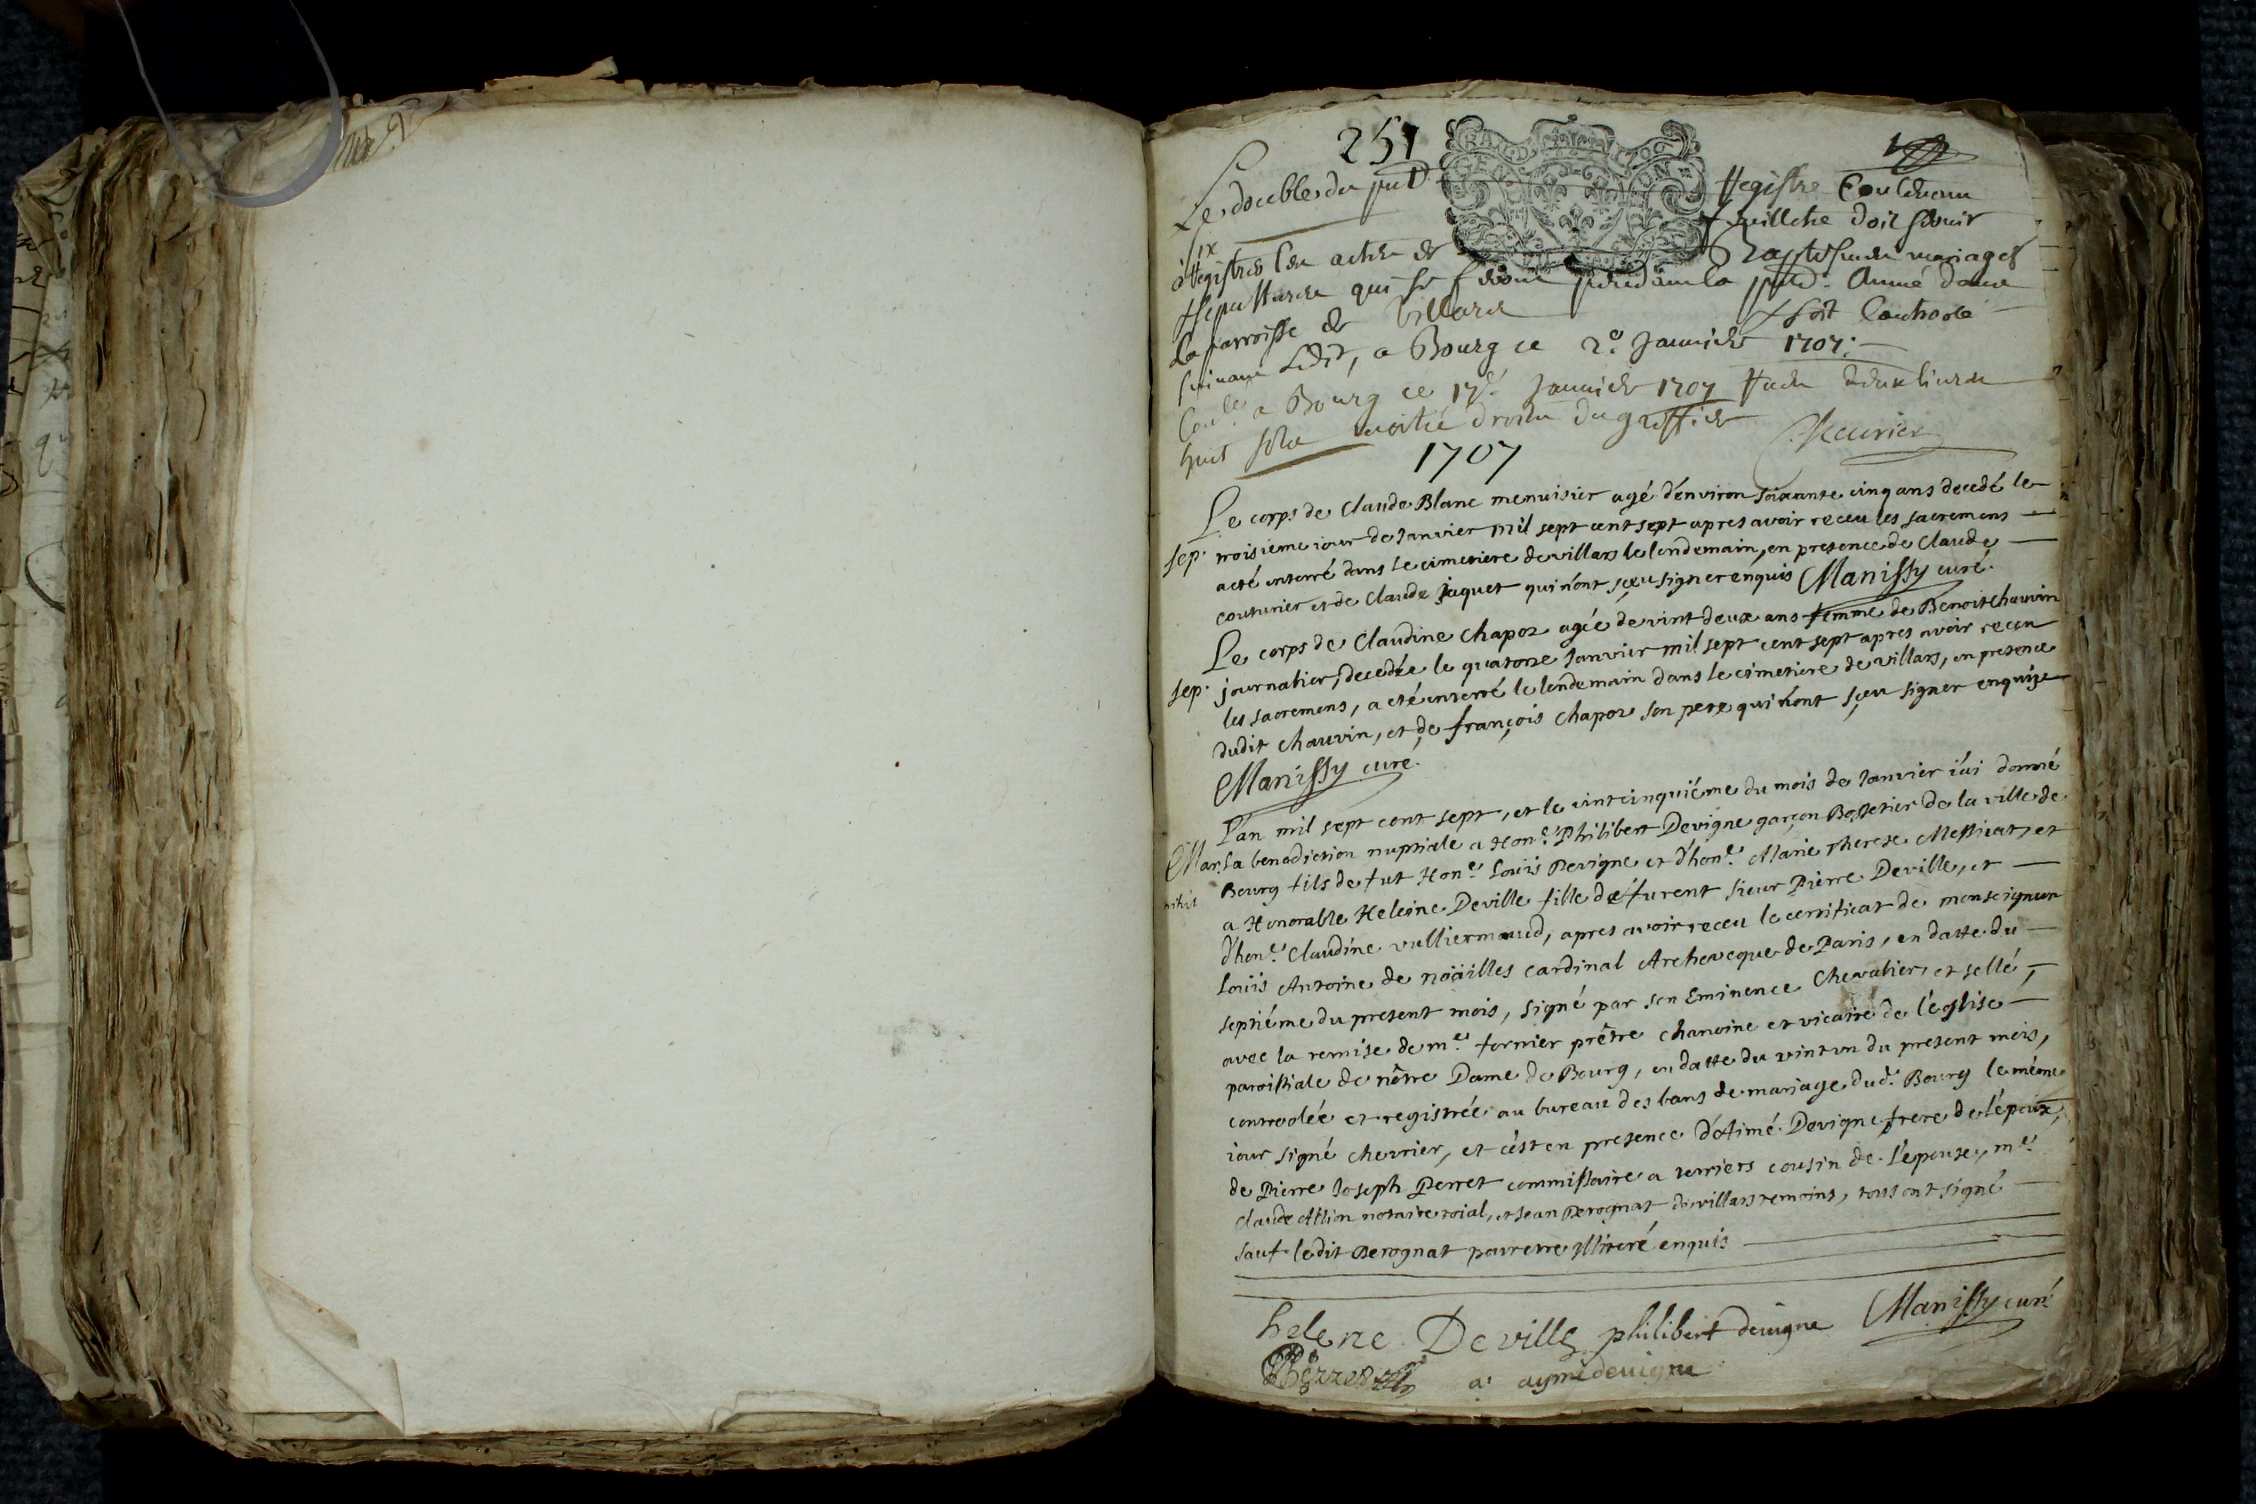 251
Le double du pnt Registre Contenant
six feuillets doit servir
à Registrer les actes de Baptesmes mariages
sepultures qui se feront pendant la pnte Année dans
la parroisse de Villars
suivant l'Edit, a Bourg ce 2e Janvier 1707
Con.lé a Bourg ce 17e Janvier 1707 deux livres
huit sols moitié droits du greffier
1707
Le corps de Claude Blanc menuisier agé d'environ soixante cinq ans decedé le
sep. troisieme iour de Ianvier mil sept cent sept apres avoir receu les sacremens
a eté enterré dans le cimetiere de villars le lendemain, en presence de Claude
couturier et de Claude jaquet qui n'ont sçeu signer enquis Manissy curé.
Le corps de Claudine Chapoz agée de vint deux ans femme de Benoit Chauvin
sep. journalier, decedée le quatorze Ianvier mil sept cent sept apres avoir receu
les sacremens, a eté enterré le lendemain dans le cimetiere de villars, en presence
dudit Chauvin, et de françois Chapoz son pere qui n'ont sçeu signer enquize
Manissy curé.
L'an mil sept cent sept, et le vintcinquiéme du mois de Ianvier i'ai donné
Mar. la benediction nuptiale a Hon.e Philibert Devigne garçon Bossetier de la ville de
Bourg fils de fut Hon.e Louis Devigne et d'hon.e Marie Therese Messicat, et
a Honorable Heleine Deville fille de furent sieur Pierre Deville, et
d'hon.e Claudine vulliermaud, apres avoir receu le certificat de monseigneur
Loüis Antoine de noäilles cardinal Archeveque de Paris, en datte du
septiéme du present mois, signé par son Eminence Chevalier, et sellé,
avec la remise de m.e fornier prêtre chanoine et vicaire de l'eglise
paroissiale de nôtre Dame de Bourg, en datte du vint un du present mois,
controolée et registrée au bureau des bans de mariage dud. Bourg le même
iour signé chevrier, et c'est en presence d'Aimé Devigne frere de l'époux,
de Pierre Ioseph Perret commissaire a terriers cousin de l'epouse, m.e
Claude Allion notaire roial, et Iean Perognat de villars temoins, tous ont signé
sauf ledit Perognat pour etre illiteré enquis
helene Deville philibert devigne Manissy curé
Perret a. aymé devigne